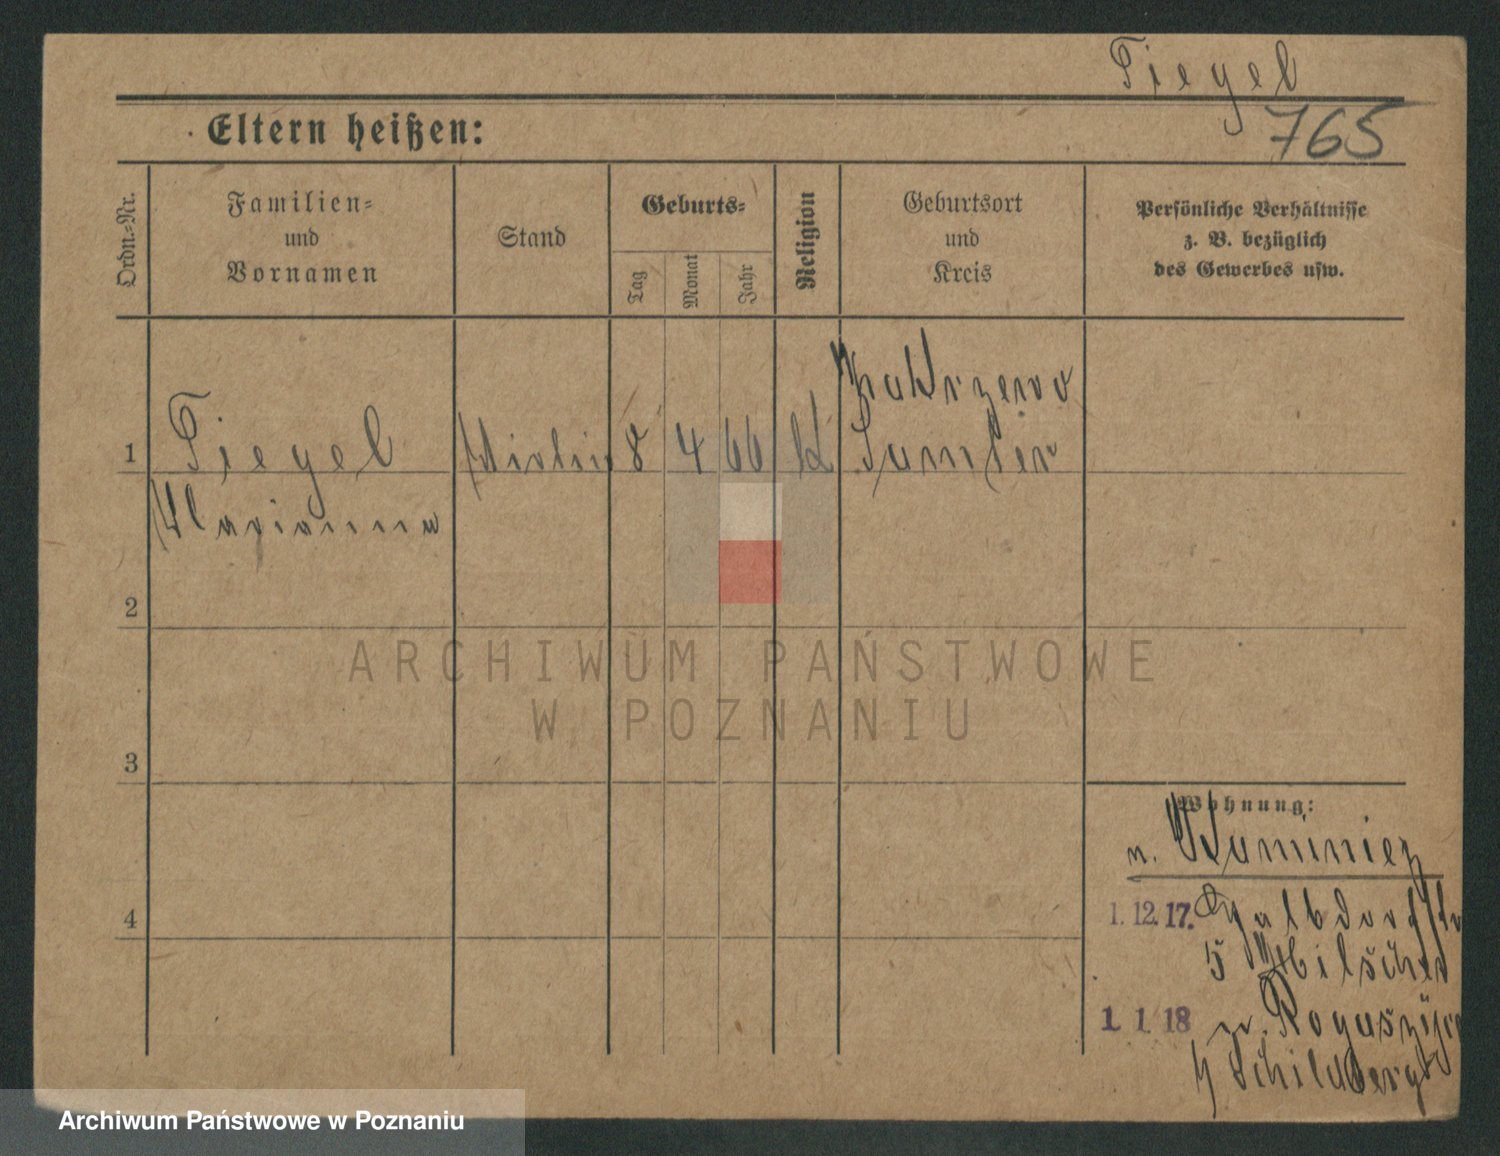 Tiegel
Eltern heißen:
765
Ordn.-Nr.
Familien-
und
Vornamen
Stand
Geburts-
Tag
Monat
Jahr
Religion
Geburtsort
und
Kreis
Persönliche Verhältnisse
z. B. bezüglich
des Gewerbes usw.
1
Tiegel
8
4
66
K
Samter
Marianna
2
ARCHIWUM PAŃSTWOWE
W POZNANIU
3
Wohnung:
n.
4
1. 12. 17.
5
1. 1. 18
Schildberg
Archiwum Państwowe w Poznaniu